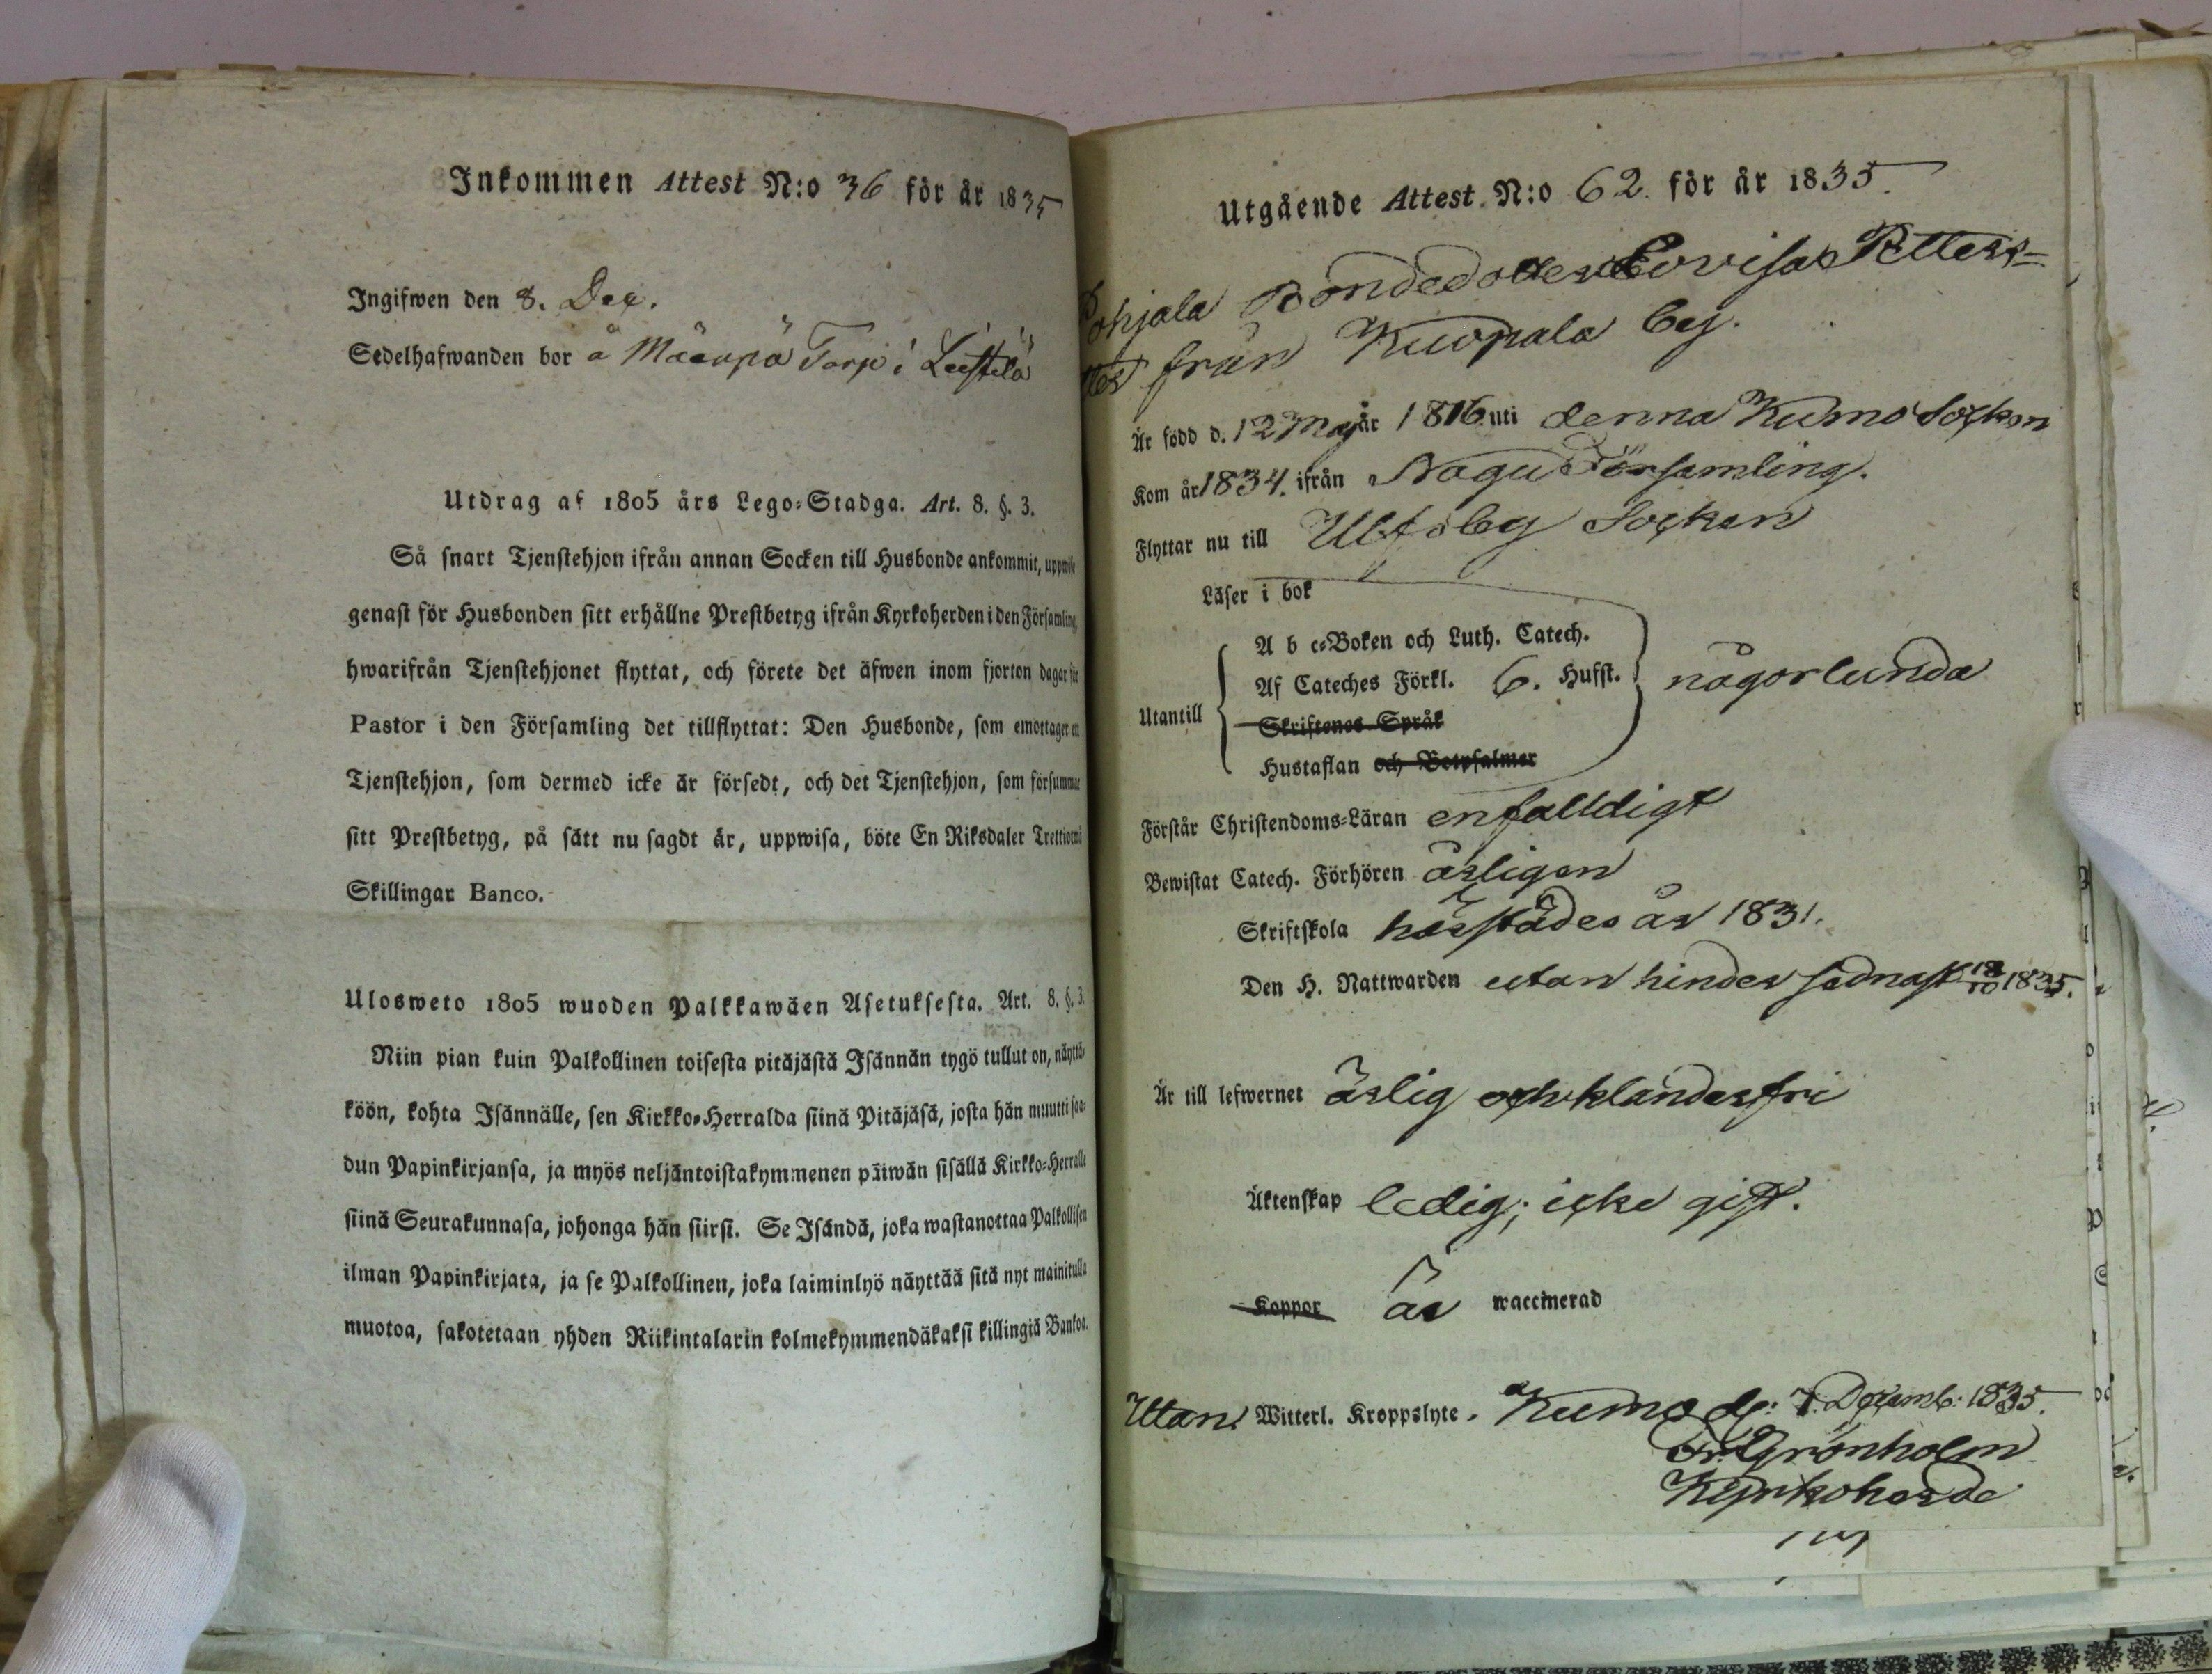 Inkommen Attest N:o 36 för år 1835
Ingifwen den 8. Dec.
Sedelhafwanden bor å Mäenpä Torp i Leistilä
Utdrag af 1805 års Lego-Stadga. Art. 8. §. 3.
Så snart Tjenstehjon ifrån annan Socken till Husbonde ankommit,
genast för Husbonden sitt erhållne Prestbetyg ifrån Kyrkoherden i den Församling,
hwarifrån Tjenstehjonet flyttat, och förete det äfwen inom fjorton dagar för
Pastor i den Församling det tillflyttat: Den Husbonde, som emottager en
Tjenstehjon, som dermed icke är försedt, och det Tjenstehjon, som försummar
sitt Prestbetyg, på sätt nu sagdt är, uppwisa, böte En Riksdaler
Skillingar Banco.
Ulosweto 1805 wuoden Palkkawäen Asetuksesta. Art. 8. §. 3.
Niin pian kuin Palkollinen toisesta pitäjästä Isännän tygö tullut on, näyttä-
köön, kohta Isännälle, sen Kirkko-Herralda siinä Pitäjäsä, josta hän muutti saa-
dun Papinkirjansa, ja myös neljäntoistakymmenen päiwän sisällä Kirkko-Herralle
siinä Seurakunnasa, johonga hän siirsi. Se Isändä, joka wastanottaa Palkollisen
ilman Papinkirjata, ja se Palkollinen, joka laiminlyö näyttää sitä nyt mainitulla
muotoa, sakotetaan yhden Riikintalarin kolmekymmendäkaksi killingiä Bankoa.
Utgående Attest N:o 62. för år 1835.
Pohjala Bondedotter Lovisa Petters=
från Kuopala by.
Är född d. 12 Maj år 1816 uti denna Kumo Socken
Kom år 1834. ifrån Nagu Församling.
Flyttar nu till Ulfsby Socken
Läser i bok
A b c-Boken och Luth. Catech.
Af Cateches Förkl. 6. Hufst. någorlunda
Utantill
Skriftenes Språk
Hustaflan och Botpsalmer
Förstår Christendoms-Läran enfalldigt
Bewistat Catech. Förhören årligen
Skriftskola härstädes år 1831.
Den H. Nattwarden utan hinder sednast 18/10 1835.
Är till lefwernet ärlig och klanderfri
Äktenskap ledig; icke gift.
Koppor är waccinerad
Utan Witterl. Kroppslyte. Kumo d: 7. Decemb: 1835.
Fr. Grönholm
Kyrkoherde